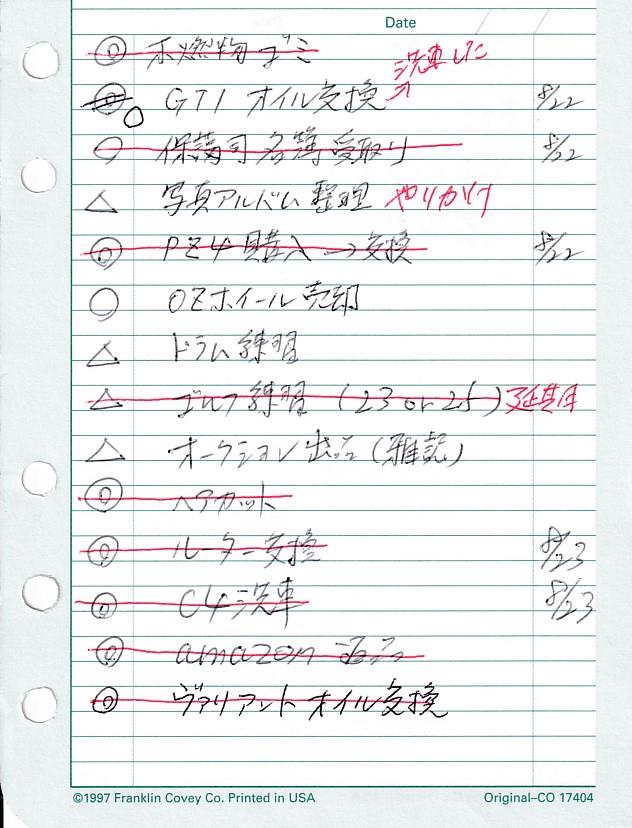 Date
◎ 不燃物ゴミ
洗車した
◎ ○ GTI オイル交換 ↗ 8/22
○ 保護司名簿受取り 8/22
△ 写真アルバム整理 やりかけ
◎ PZ4購入→交換 8/22
○ OZホイール売却
△ ドラム練習
△ ゴルフ練習 (23 or 25) 延期
△ オークション出品(雑誌)
◎ ヘアカット
◎ ルーター交換 8/23
◎ C4洗車 8/23
◎ amazon 返品
◎ ヴァリアント オイル交換
©1997 Franklin Covey Co. Printed in USA Original–CO 17404